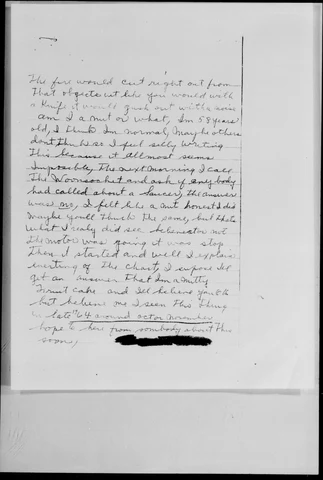 The fire would cut right out from
that objects ut like you would with
a Knife it would gush out with a noise
am I a nut or what, Im 58 years
old, I think Im normal, maybe others
dont think so I feel silly writing
this because it allmost seems
Impossibly. The next morning I call
The Woonsocket and ask if any body
had called about a Saucer, the answer
was no, I felt like a nut honest I did
maybe you'll think the same, but thats
what I realy did see believe or not
the motor was going it was stop
then I started and well I explain
everting of the chart, I supose Ill
get an answer that Im a nutty
Fruit cake and Ill believe you
but believe me I seen this thing
in late "64 around octor November
hope to here from sombody about this
soon,